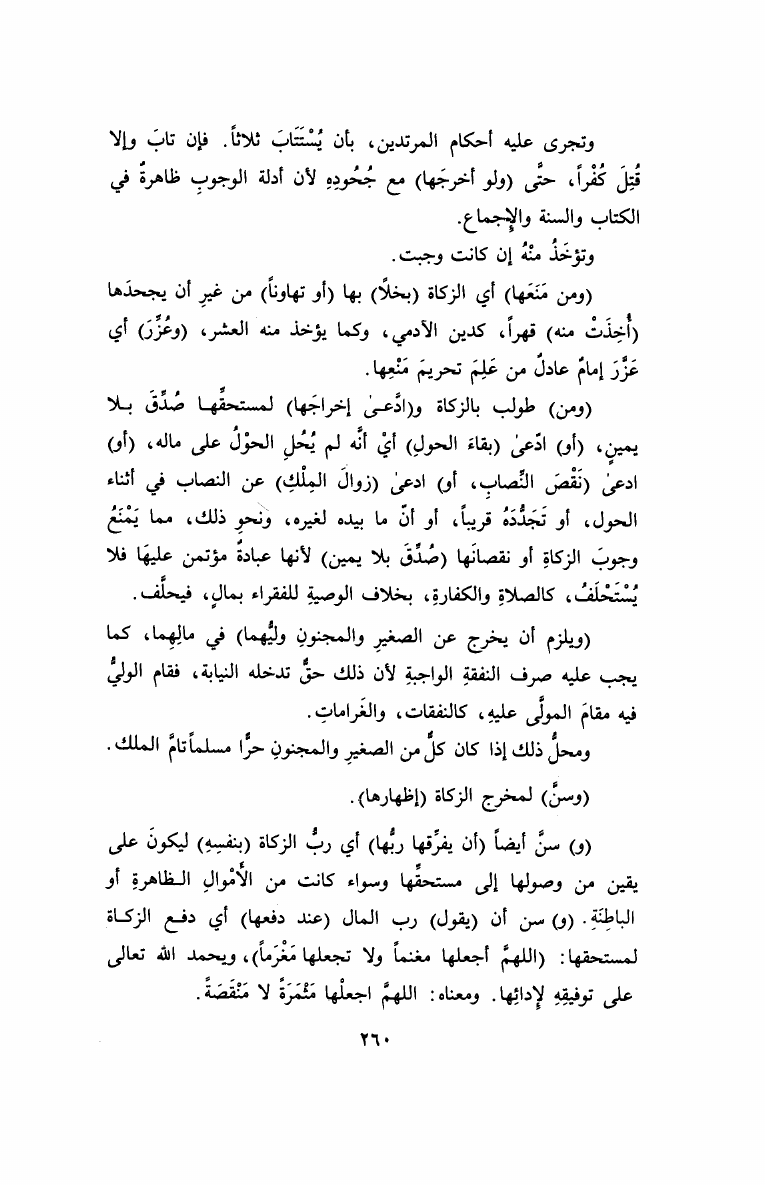 وتجرى عليه أحكام المرتدين، بأن يُسْتَتَابَ ثلاثاً. فإن تابَ وإلا
قُتِلَ كُفْراً، حتَّى (ولو أخرجَها) مع جُحُودِهِ لأن أدلة الوجوبِ ظاهرةٌ في
الكتاب والسنة والإجماع.
وتؤخَذُ منْهُ إن كانت وجبت.
(ومن مَنَعَها) أي الزكاة (بخلًا) بها (أو تهاوناً) من غيرِ أن يجحدَها
(أُخِذَتْ منه) قهراً، كدين الآدمي، وكما يؤخذ منه العشر، (وعُزِّرَ) أي
عَزَّرَ إمامٌ عادلٌ من عَلِمَ تحريمَ مَنْعِها.
(ومن) طولب بالزكاة و(ادَّعىٰ إخراجَها) لمستحقِّها صُدِّقَ بلا
يمينٍ، (أو) ادّعىٰ (بقاءَ الحولِ) أيْ أنَّه لم يُحُلِ الحوْلُ على ماله، (أو)
ادعىٰ (نَقْصَ النِّصابِ، أو) ادعىٰ (زوالَ المِلْكِ) عن النصاب في أثناء
الحول، أو تَجَدُّدَهُ قريباً، أو أنّ ما بيده لغيره، ونحوِ ذلك، مما يَمْنَعُ
وجوبَ الزكاةِ أو نقصانَها (صُدِّقَ بلا يمين) لأنها عبادةٌ مؤتمن عليهَا فلا
يُسْتَحْلَفُ، كالصلاةِ والكفارةِ، بخلاف الوصيةِ للفقراء بمالٍ، فيحلَّف.
(ويلزم أن يخرج عن الصغيرِ والمجنونِ وليُّهما) في مالِهِما، كما
يجب عليه صرف النفقةِ الواجبةِ لأن ذلك حقٌّ تدخله النيابة، فقام الوليُّ
فيه مقامَ المولَّى عليهِ، كالنفقات، والغَراماتِ.
ومحلُّ ذلك إذا كان كلٌّ من الصغيرِ والمجنونِ حرًّا مسلماً تامَّ الملك.
(وسنَّ) لمخرج الزكاة (إظهارها).
(و) سنَّ أيضاً (أن يفرِّقها ربُّها) أي ربُّ الزكاة (بنفسِهِ) ليكونَ على
يقين من وصولها إلى مستحقِّها وسواء كانت من الأَمْوالِ الظاهرةِ أو
الباطِنَةِ. (و) سن أن (يقول) رب المال (عند دفعها) أي دفع الزكاة
لمستحقها: (اللهمَّ أجعلها مغنماً ولا تجعلها مَغْرَماً)، ويحمد الله تعالى
على توفيقِهِ لإدائِها. ومعناه: اللهمَّ اجعلْها مَثْمَرَةً لا مَنْقَصَةً.
٢٦٠